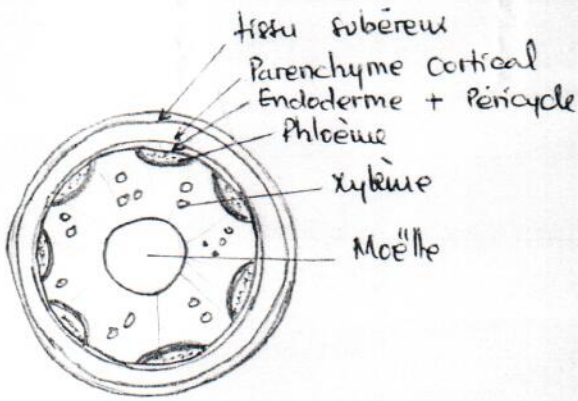 tissu subéreux
Parenchyme Cortical
Endoderme + Péricycle
Phloème
Xylème
Moëlle